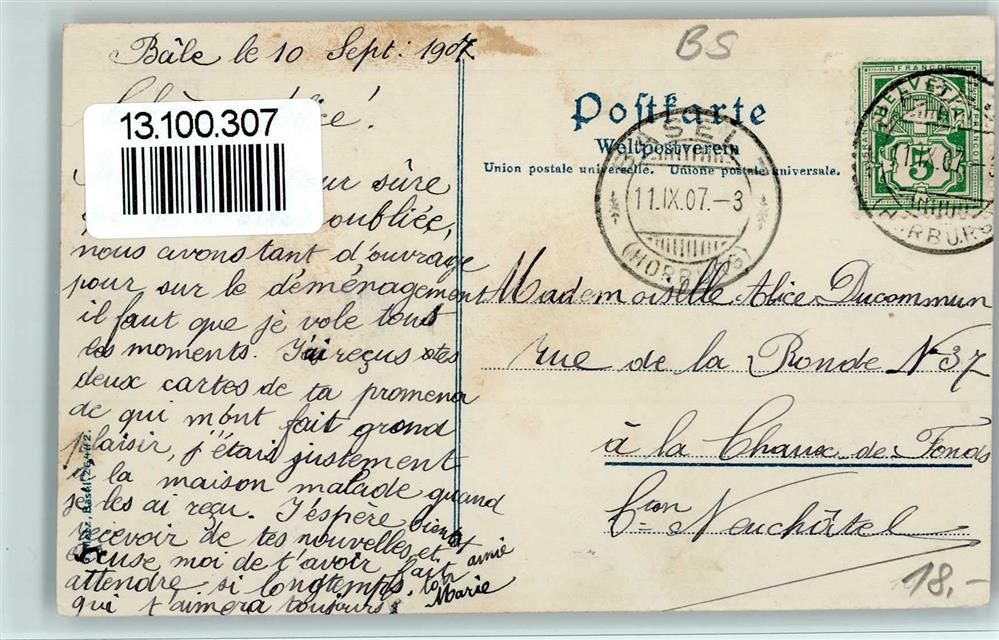 Bâle le 10 Sept: 1907
BS
13.100.307
Postkarte
Weltpostverein
Union postale universelle. Unione postale universale.
BASEL
11.IX.07.-3
(HORBURG)
FRANCO
HELVETIA
5
11.IX.07.-3
HORBURG
sûre
oubliée,
nous avons tant d'ouvrage
pour sur le déménagement
il faut que je vole tous
les moments. J'ai reçus tes
deux cartes de ta promena
de qui m'ont fait grand
plaisir, j'étais justement
à la maison malade quand
je les ai reçu. J'éspère bientôt
recevoir de tes nouvelles et
excuse moi de t'avoir fait
attendre si longtemps. ton amie
qui t'aimera toujours: Marie
Mademoiselle Alice Ducommun
rue de la Ronde No 37
à la Chaux-de-Fonds
Cton Neuchâtel
Metz, Basel
18.-